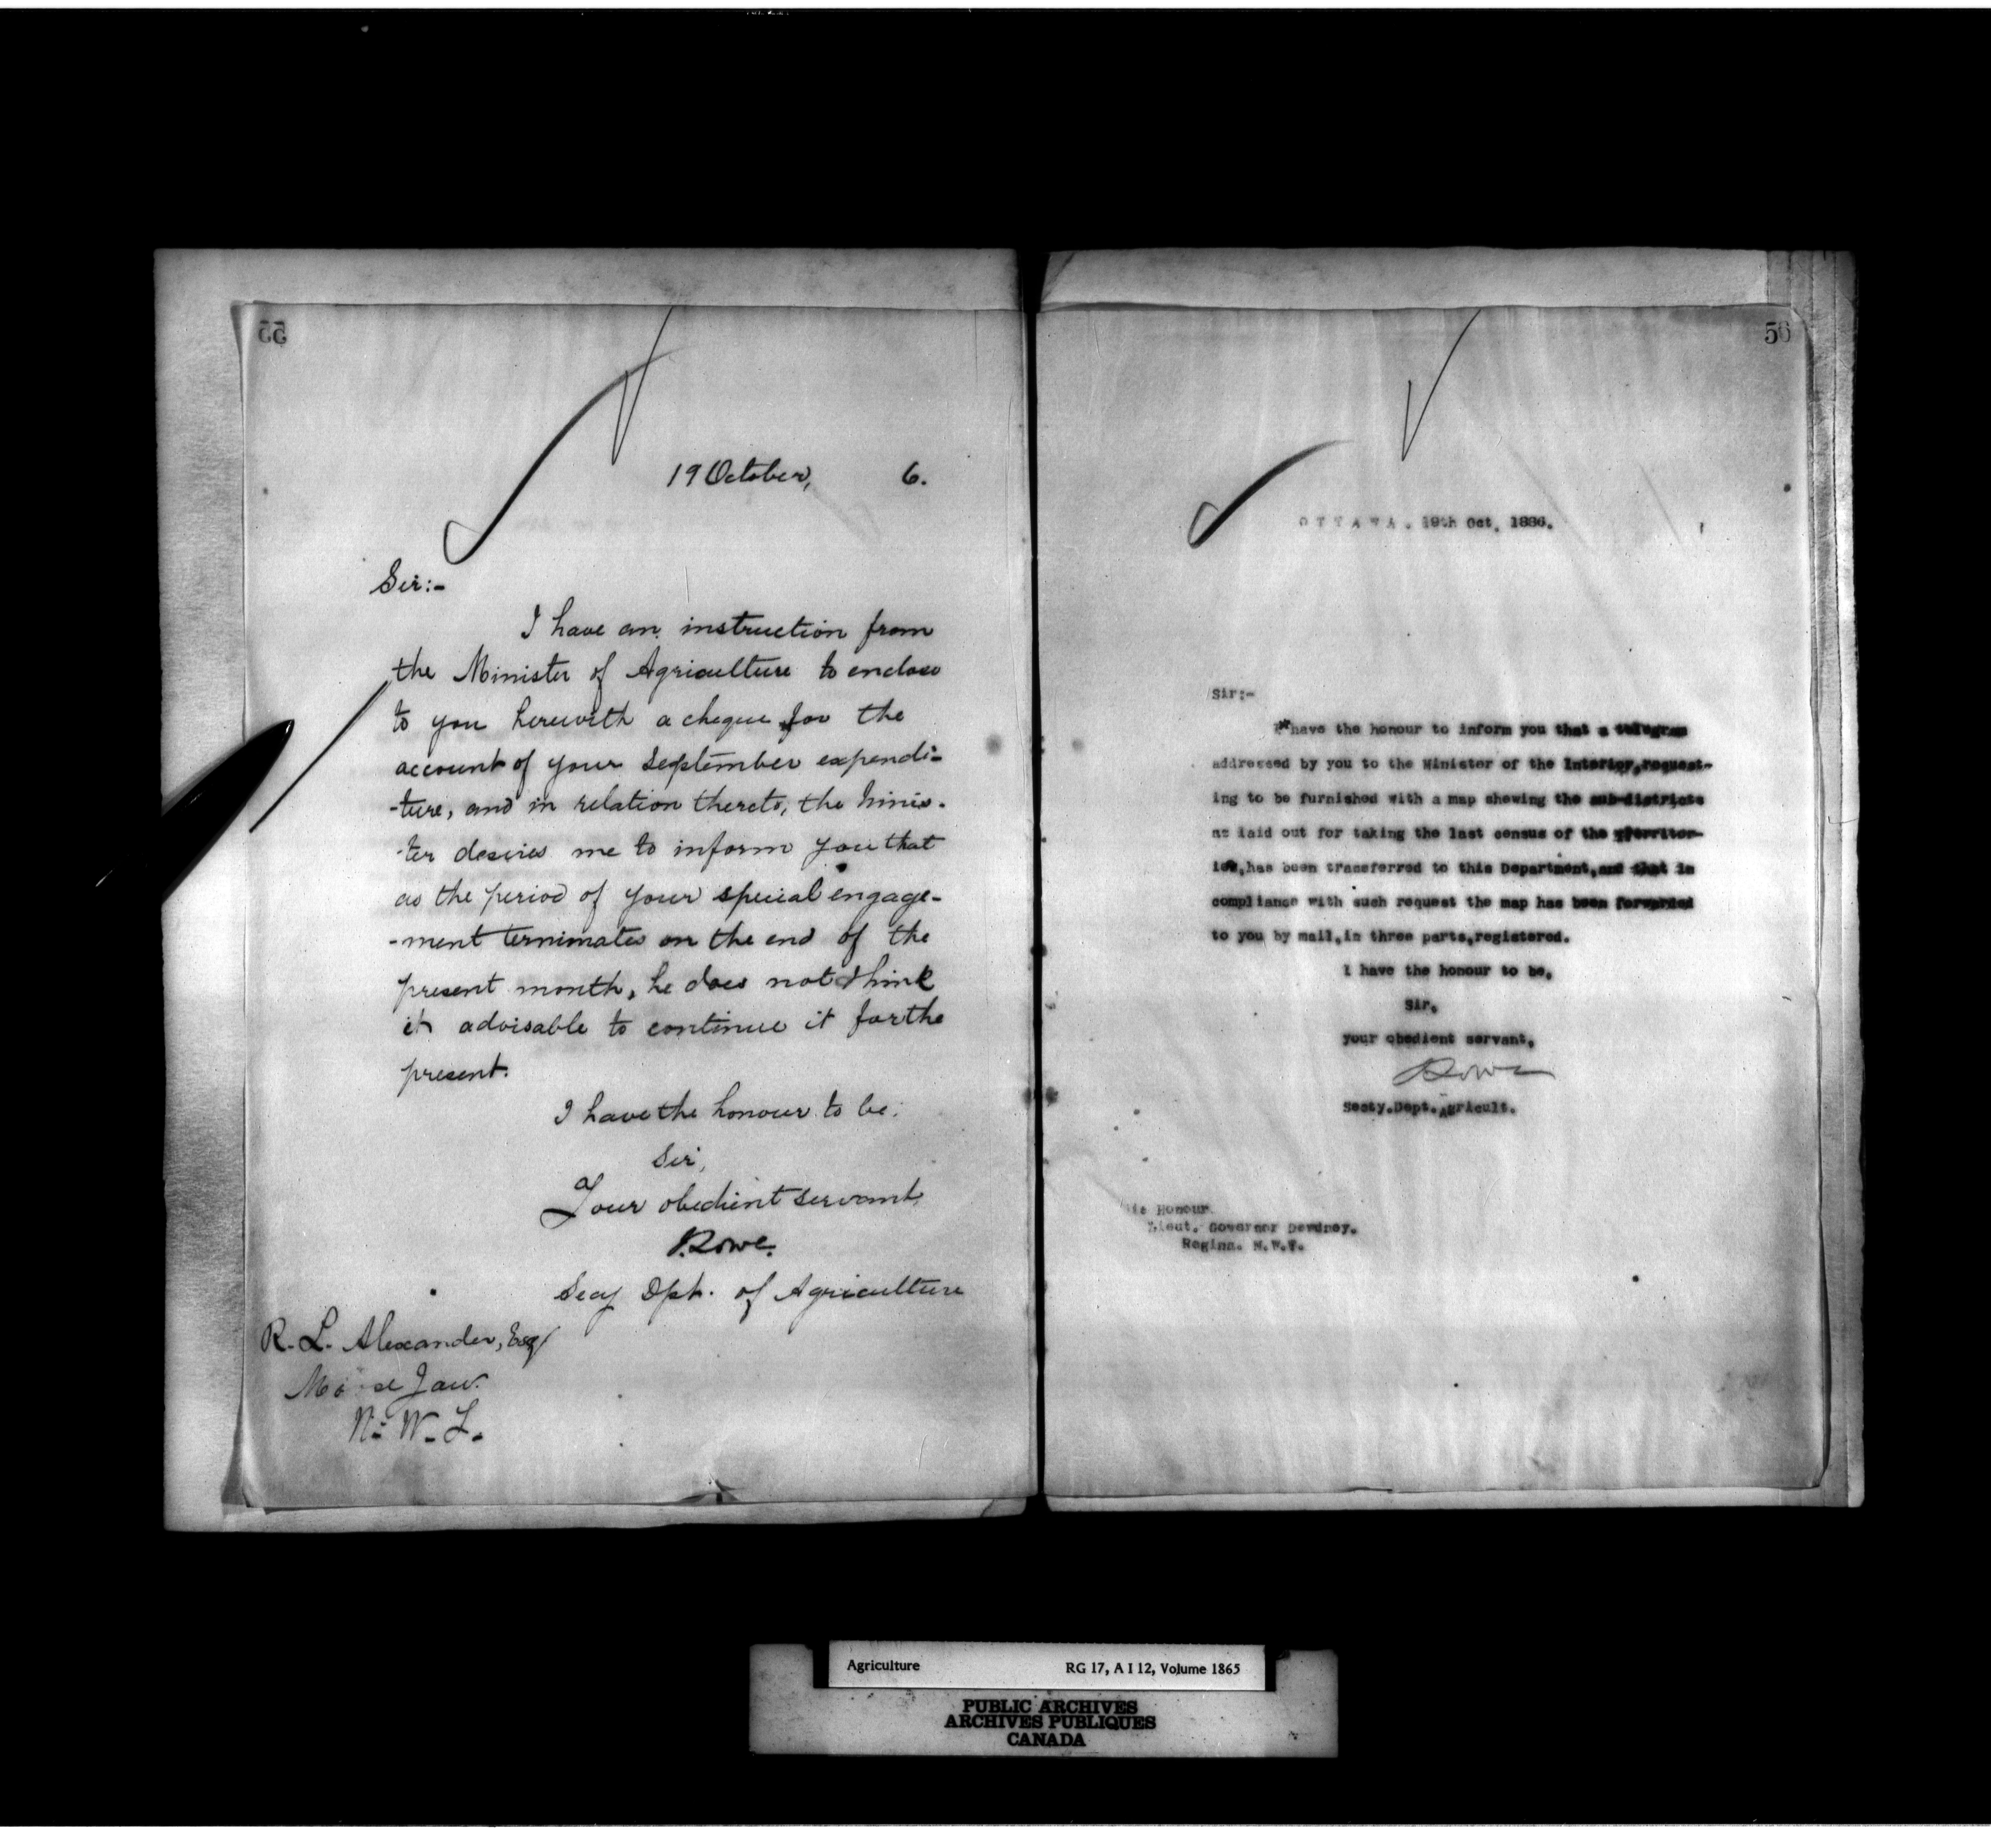 55
19 October, 6.
Sir:-
I have an instruction from
the Minister of Agriculture to enclose
to you herewith a cheque for the
account of your September expendi-
-ture, and in relation thereto, the Minis-
-ter desires me to inform you that
as the period of your special engage-
-ment terminates on the end of the
present month, he does not think
it advisable to continue it for the
present.
I have the honour to be,
Sir,
Your obedient servant,
J. Lowe.
Secy Dpt. of Agriculture
R. L. Alexander, Esq
Moose Jaw.
N. W. T.
56
OTTAWA. 19th Oct. 1886.
Sir:-
I have the honour to inform you that a telegram
addressed by you to the Minister of the Interior, request-
ing to be furnished with a map shewing the sub-districts
as laid out for taking the last census of the Territor-
ies, has been transferred to this Department, and that in
compliance with such request the map has been forwarded
to you by mail, in three parts, registered.
I have the honour to be,
Sir,
your obedient servant,
J. Lowe
Secty. Dept. Agricult.
His Honour
Lieut. Governor Dewdney.
Regina. N.W.T.
Agriculture RG 17, A I 12, Volume 1865
PUBLIC ARCHIVES
ARCHIVES PUBLIQUES
CANADA